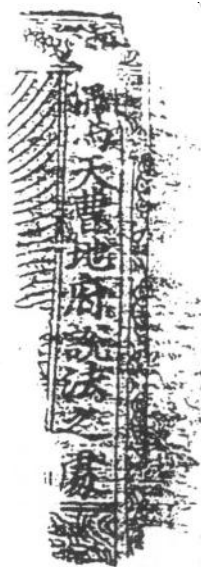 天曹地府説法之處